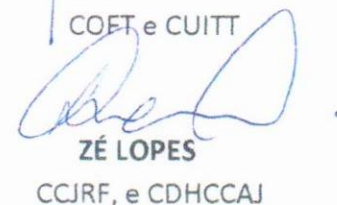 COFT e CUITT
ZÉ LOPES
CCJRF, e CDHCCAJ